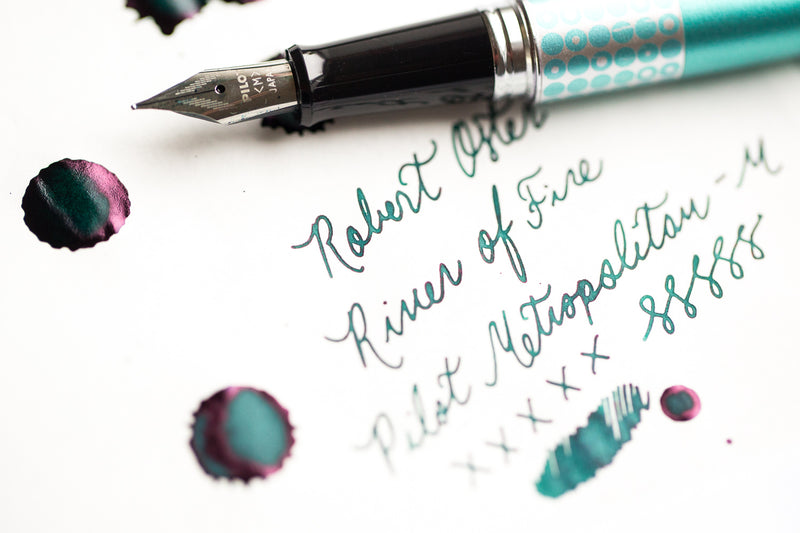 PILOT
<M>
JAPAN
Robert Oster
River of Fire
Pilot Metropolitan - M
xxxxx 88888